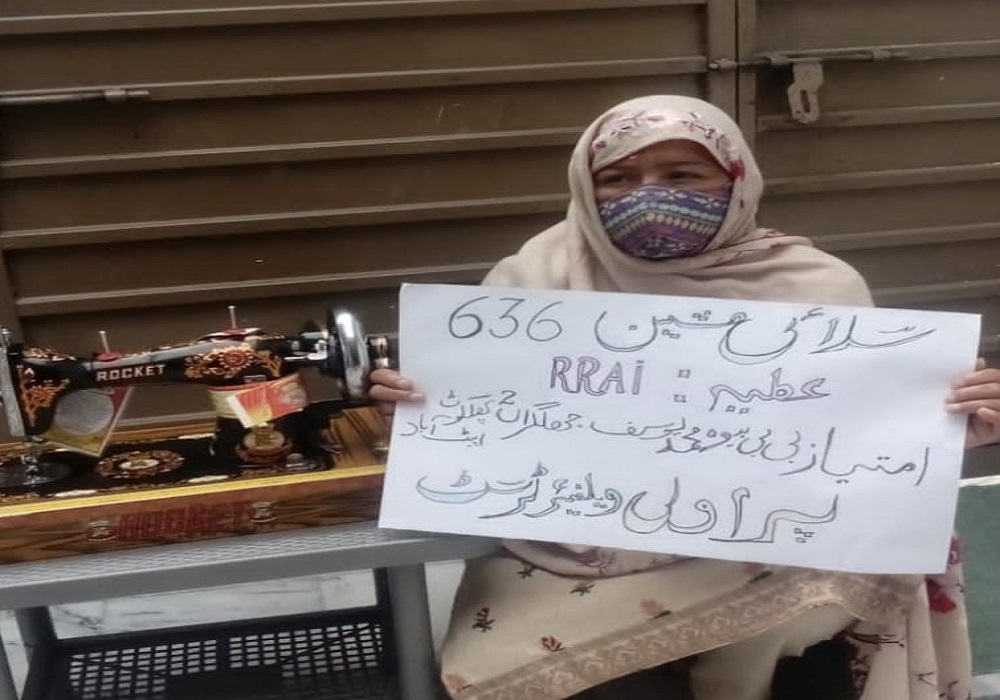 سلائی مشین 636
عطیہ : RRAi
امتیاز بی بی بیوہ محمد یوسف جھلگراں 2 پھلکوٹ
ایبٹ آباد
پیراولی ویلفیئر ٹرسٹ
ROCKET